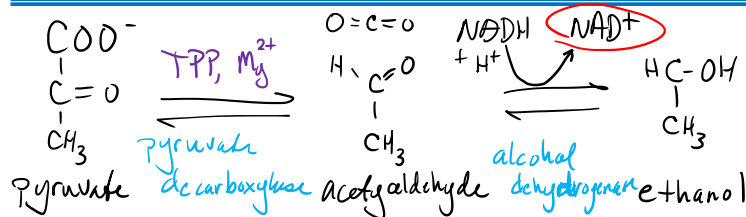 COO⁻
C=O
CH₃
pyruvate
TPP, Mg²⁺
pyruvate
decarboxylase
O=C=O
H C=O
CH₃
acetyaldehyde
NADH NAD⁺
+ H⁺
alcohol
dehydrogenase
HC-OH
CH₃
ethanol